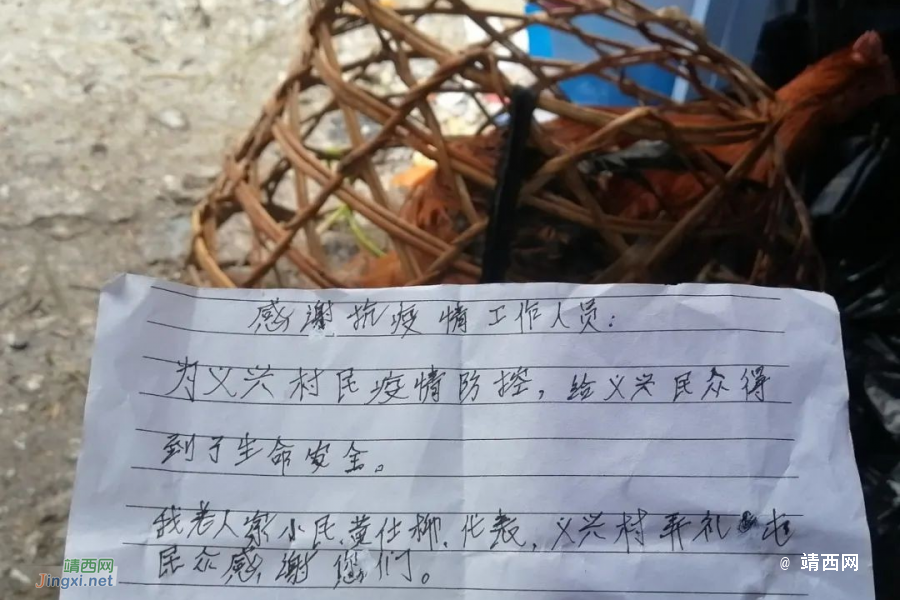 感谢抗疫情工作人员:
为义兴村民疫情防控,给义兴民众得
到了生命安全。
我老人家小民,黄仕柳,代表,义兴村弄礼屯
民众感谢您们。
靖西网
Jingxi.net
@ 靖西网